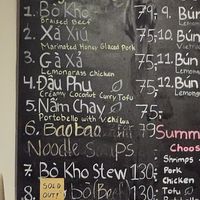 1. Bò Kho 79,- 9. Bún
Braised Beef
2. Xá Xíu 75,- 10. Bún
Marinated Honey Glazed Pork
3. Gà Xả 75,- 11. Bún
Lemongrass Chicken Lemon
4. Đậu Phụ 75,- 12. Bún
Creamy Coconut Curry Tofu
5. Nấm Chay 75,-
Portobello with Chili
6. Baobao Summ
Noodle Soups Choos
• Shrimps
• Pork
7. Bò Kho Stew 130,- Chicken
• Tofu
8. SOLD OUT 130,-